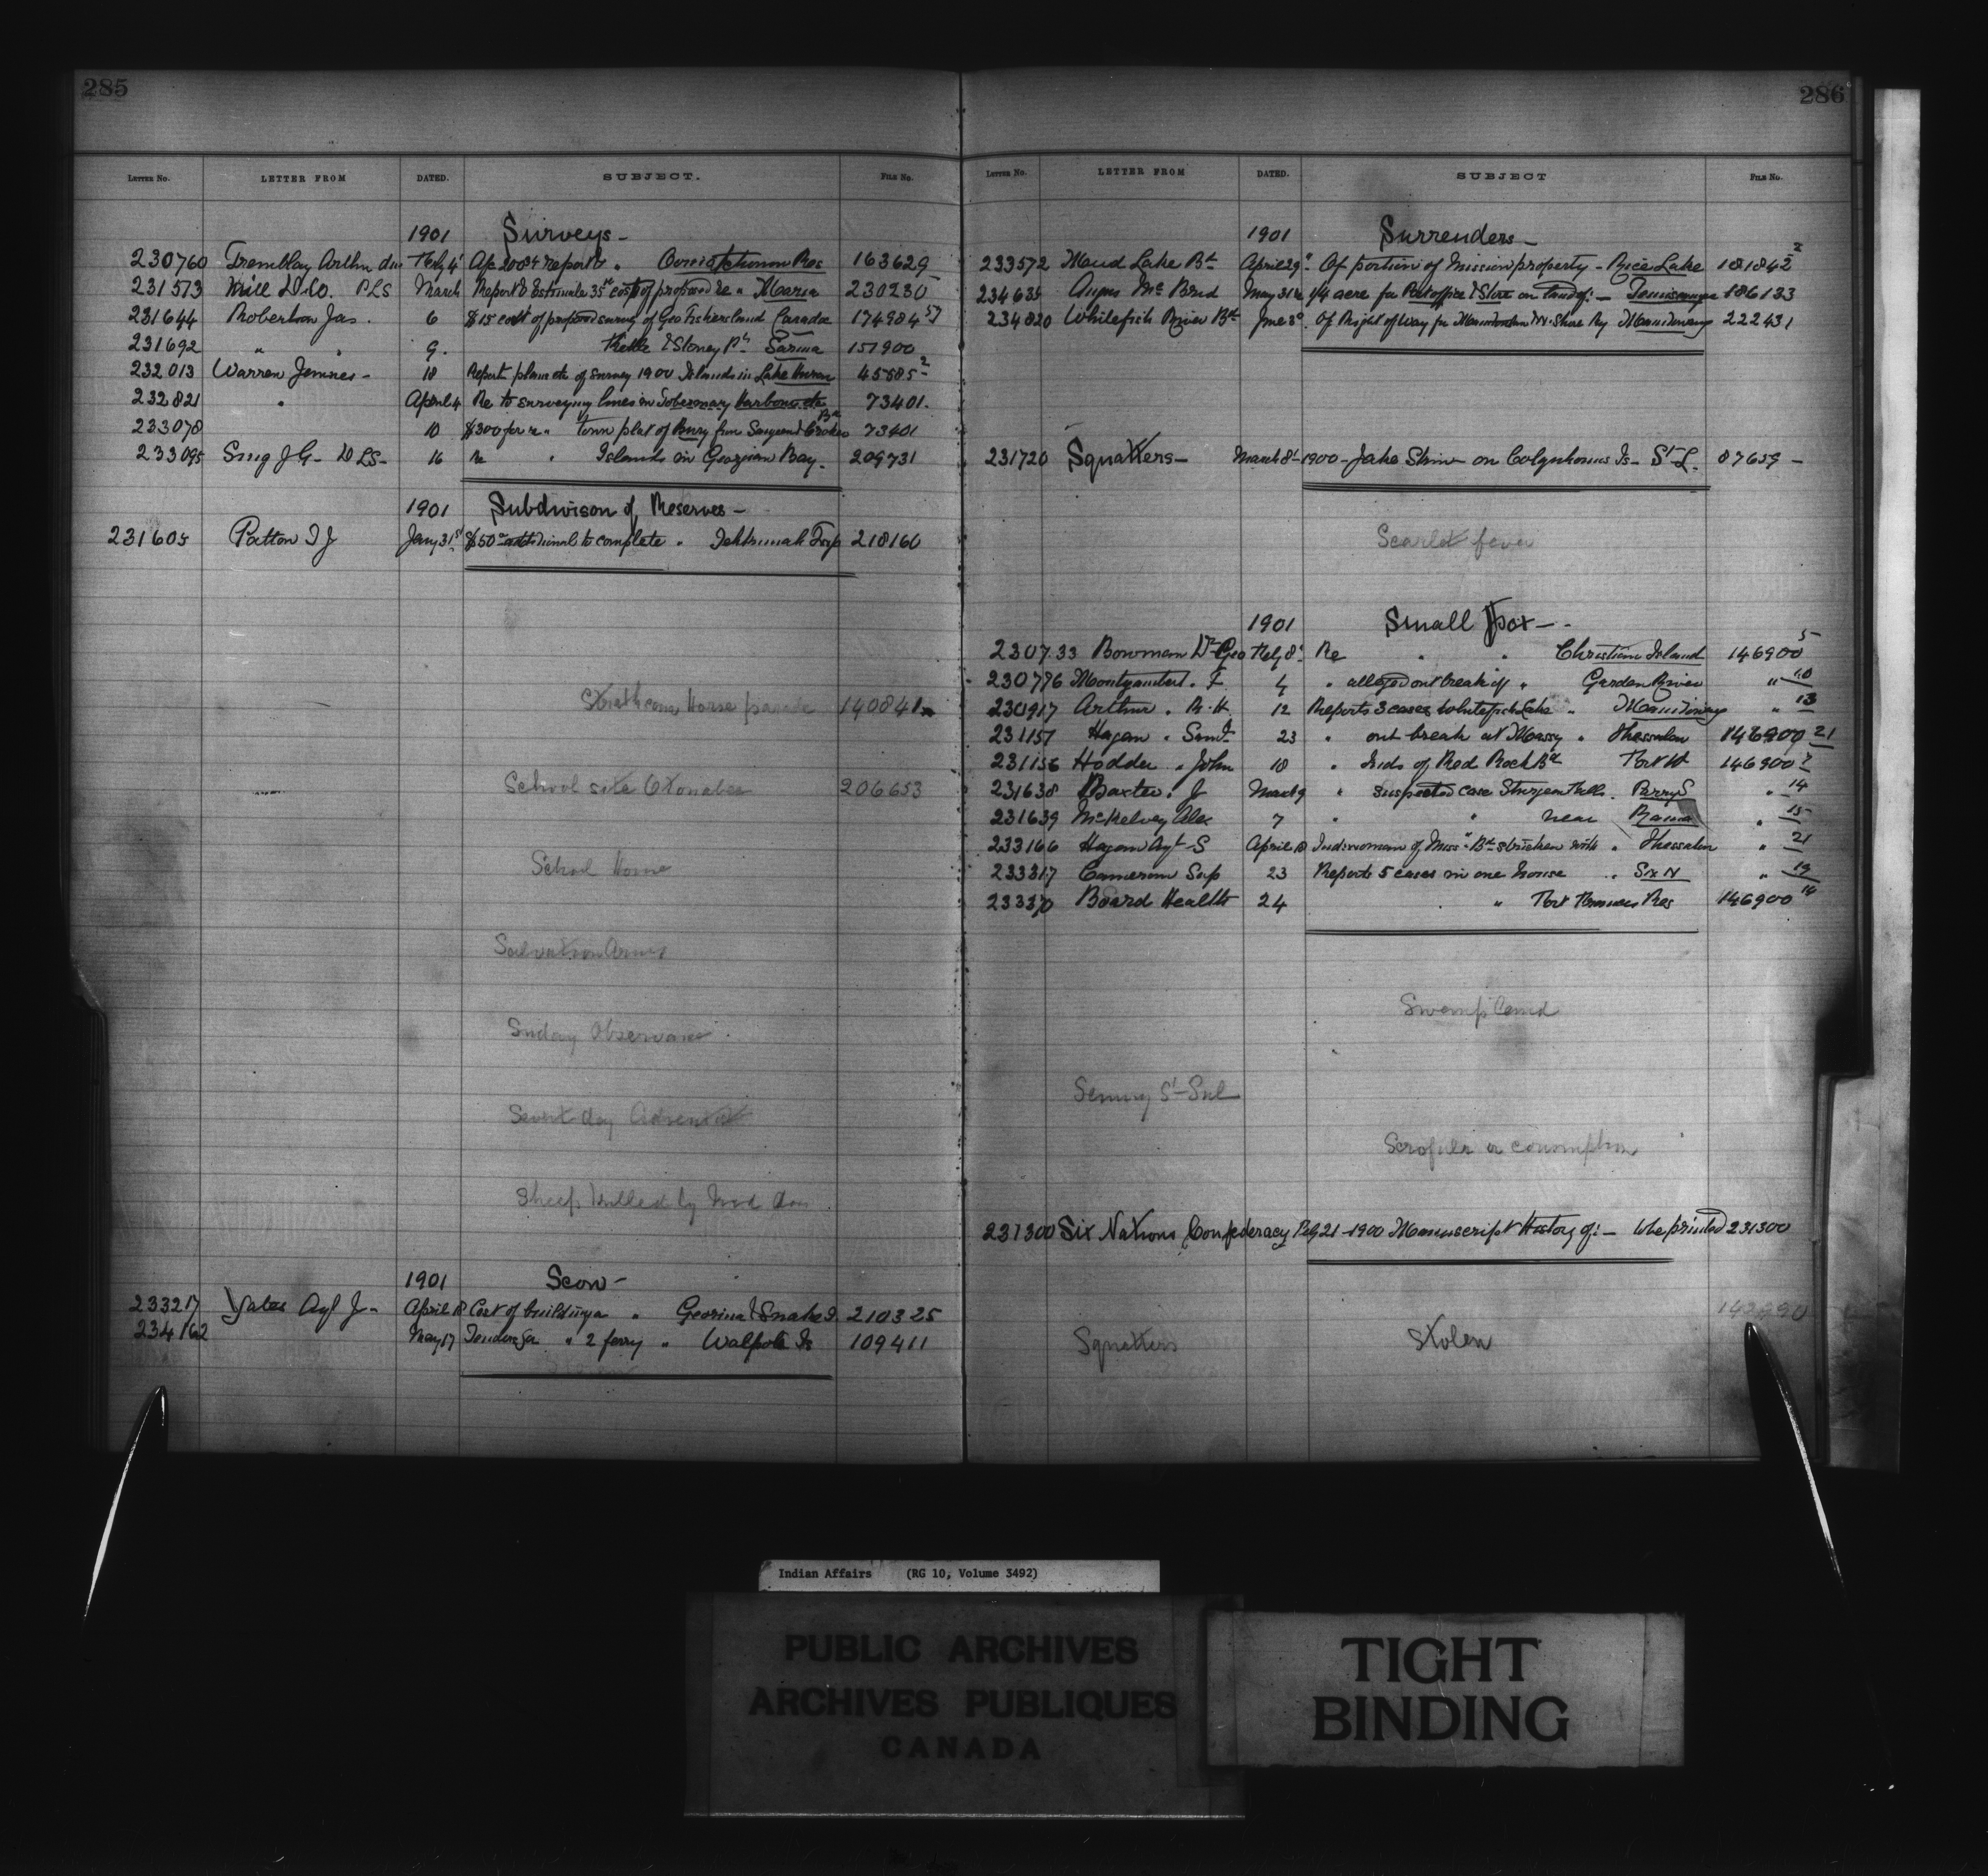 285
LETTER No. LETTER FROM DATED. SUBJECT. FILE No.
1901 Surveys -
230760 Tremblay Arthur Feby 4 Ap 200.84 report & " Res 163629
231573 & Co. PLS March Report & Estimate 35 cost of proposed re " Maria 230230
231644 Robertson Jas. 6 $15 cost of proposed survey of Geo Fishers land Caradoc 174984 57
231692 " " 9. Kettle & Stoney Pt Sarnia 151900
232013 Warren James - 18 Report plans etc of survey 1900 Islands in Lake Huron 45585 2
232821 " April 4 Re to surveying lines in Tobermory Harbour etc 73401.
233078 10 $300 for re " town plat of Bury from Sargeant 73401
233095 J G - DLS - 16 re " Islands in Georgian Bay. 209731
1901 Subdivison of Reserves -
231605 Patton T J Jany 31st $50 additional to complete " Tehkumah Twp 218160
Strathcona Horse parade 140841
School site Otonabee 206653
School Home
Salvation Army
Sunday Observance.
Seventh day Adventist
Sheep killed by Ind dog
1901 Scow -
233217 Yates Agt J - April 18 Cost of building a " Georgina & Snake I 210325
234162 May 17 Tenders for " 2 ferry " Walpole Is 109411
286
LETTER No. LETTER FROM DATED. SUBJECT FILE No.
1901 Surrenders -
233572 Mud Lake Bd April 29 Of portion of Mission property - Rice Lake 181842 2
234635 Angus Mc Brid May 31 re 1/4 acre for Post office & Store on land of: - Temiscamingue 186133
234820 Whitefish River Bd June 3 Of Right of Way for Manitoulin & N. Shore Ry Manitowaning 222431
231720 Squatters - March 8 - 1900 - Jake Shin on Colquhouns Is - St L. 87659 -
Scarlet fever
1901 Small Pox - -
230733 Bowman Dr Geo Feby 8 Re " " Christian Island 146900 5
230776 Montizambert. F 4 " alleged out break of " Garden River " 10
230917 Arthur. R. H. 12 Reports 3 cases Whitefish Lake " Manitowaning " 13
231157 Hagan " Saml 23 " out break at Massey " Thessalon 146900 21
231156 Hodder " John 18 " Inds of Red Rock Bd Port A 146900 7
231638 Baxter. J March 9 " suspected case Sturgeon Falls. Parry S " 14
231639 McKelvey Alex 7 " " near Rama " 15
233166 Hagan Agt - S April 18 Ind woman of Miss Bd stricken with " Thessalon " 21
233317 Cameron Sup 23 Reports 5 cases in one house " Six N " 19
233370 Board Health 24 " Res 146900 14
Swamp Land
St - Sul
Scrofula or consumption
231300 Six Nations Confederacy Feby 21 - 1900 Manuscript History of: - to be printed 231300
142990
Squatters Stolen
Indian Affairs (RG 10, Volume 3492)
PUBLIC ARCHIVES
ARCHIVES PUBLIQUES
CANADA
TIGHT
BINDING